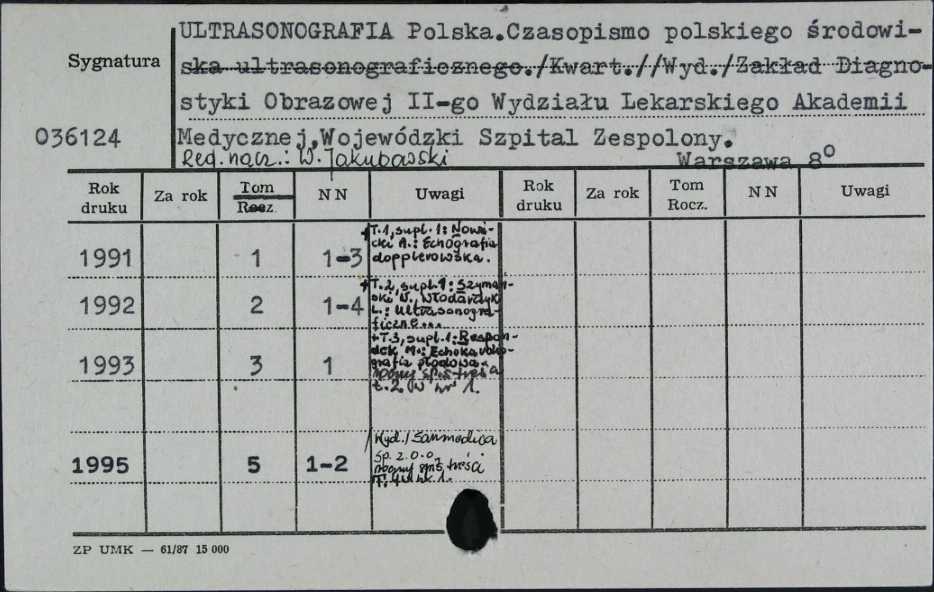 ULTRASONOGRAFIA Polska.Czasopismo polskiego środowi-
Sygnatura
ska ultrasonograficznego./Kwart.//Wyd./Zakład Diagno-
styki Obrazowej II-go Wydziału Lekarskiego Akademii
036124
Medycznej,Wojewódzki Szpital Zespolony.
Red. nacz.: W. Jakubowski
Warszawa 8°
Rok druku Za rok Tom Rocz. NN Uwagi Rok druku Za rok Tom Rocz. NN Uwagi
1991 1 1-3
+T.1, supl. 1: Nowi-
cki A.: Echografia
dopplerowska.
1992 2 1-4
+T.2, supl. 1: Szymań-
ski W., Włodarczyk
L.: Ultrasonogra-
ficzne...
1993 3 1
+T.3, supl. 1: Respon-
dek M.: Echokardio-
grafia płodowa.
roczny spis treści
t. 2 w nr 1.
1995 5 1-2
/Wyd./ Sanmedica
Sp. z o.o.
roczny spis treści
T. 4 w nr. 1.
ZP UMK — 61/87 15 000